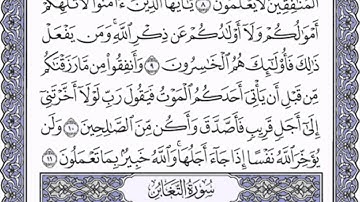 ٱلْمُنَٰفِقِينَ لَا يَعْلَمُونَ ٨ يَٰٓأَيُّهَا ٱلَّذِينَ ءَامَنُوا۟ لَا تُلْهِكُمْ
أَمْوَٰلُكُمْ وَلَآ أَوْلَٰدُكُمْ عَن ذِكْرِ ٱللَّهِ ۚ وَمَن يَفْعَلْ
ذَٰلِكَ فَأُو۟لَٰٓئِكَ هُمُ ٱلْخَٰسِرُونَ ٩ وَأَنفِقُوا۟ مِن مَّا رَزَقْنَٰكُم
مِّن قَبْلِ أَن يَأْتِىَ أَحَدَكُمُ ٱلْمَوْتُ فَيَقُولَ رَبِّ لَوْلَآ أَخَّرْتَنِىٓ
إِلَىٰٓ أَجَلٍ قَرِيبٍ فَأَصَّدَّقَ وَأَكُن مِّنَ ٱلصَّٰلِحِينَ ١٠ وَلَن
يُؤَخِّرَ ٱللَّهُ نَفْسًا إِذَا جَآءَ أَجَلُهَا ۚ وَٱللَّهُ خَبِيرٌۢ بِمَا تَعْمَلُونَ ١١
سُورَةُ التَّغَابُنِ